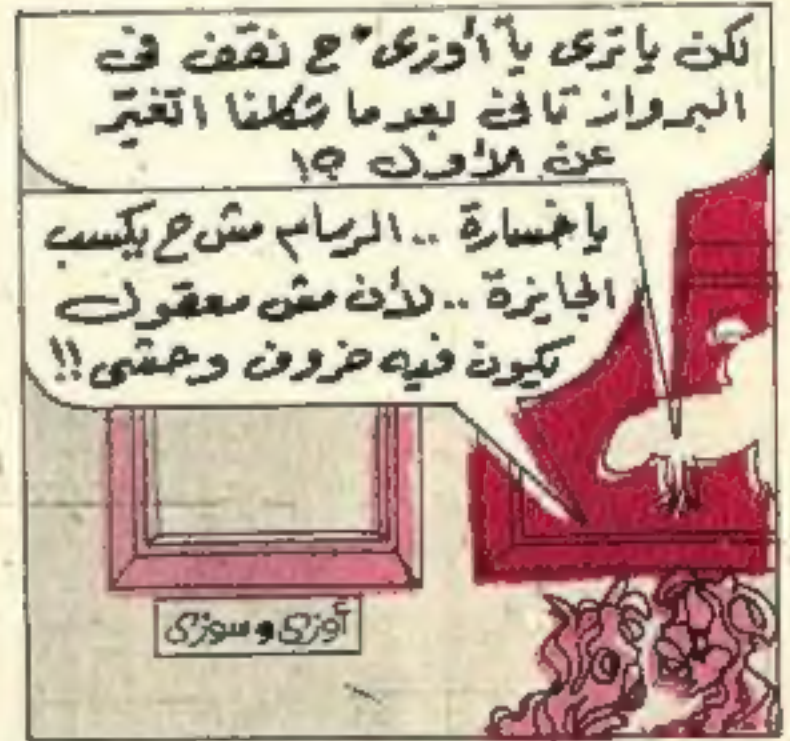 لكن ياترى يا أوزى ح نقف فى
البرواز تانى بعد ما شكلنا اتغير
عن الأول ؟!
ياخسارة .. الرسام مش ح يكسب
الجايزة .. لأن مش معقول
يكون فيه خروف وحشى !!
أوزى وسوزى